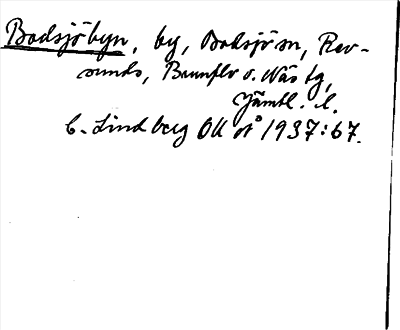 Bodsjöbyn, by, Bodsjö sn, Rev-
sunds, Brunflo o. Näs tg,
Jämtl. l.
C. Lindberg OU nº 1937:67.